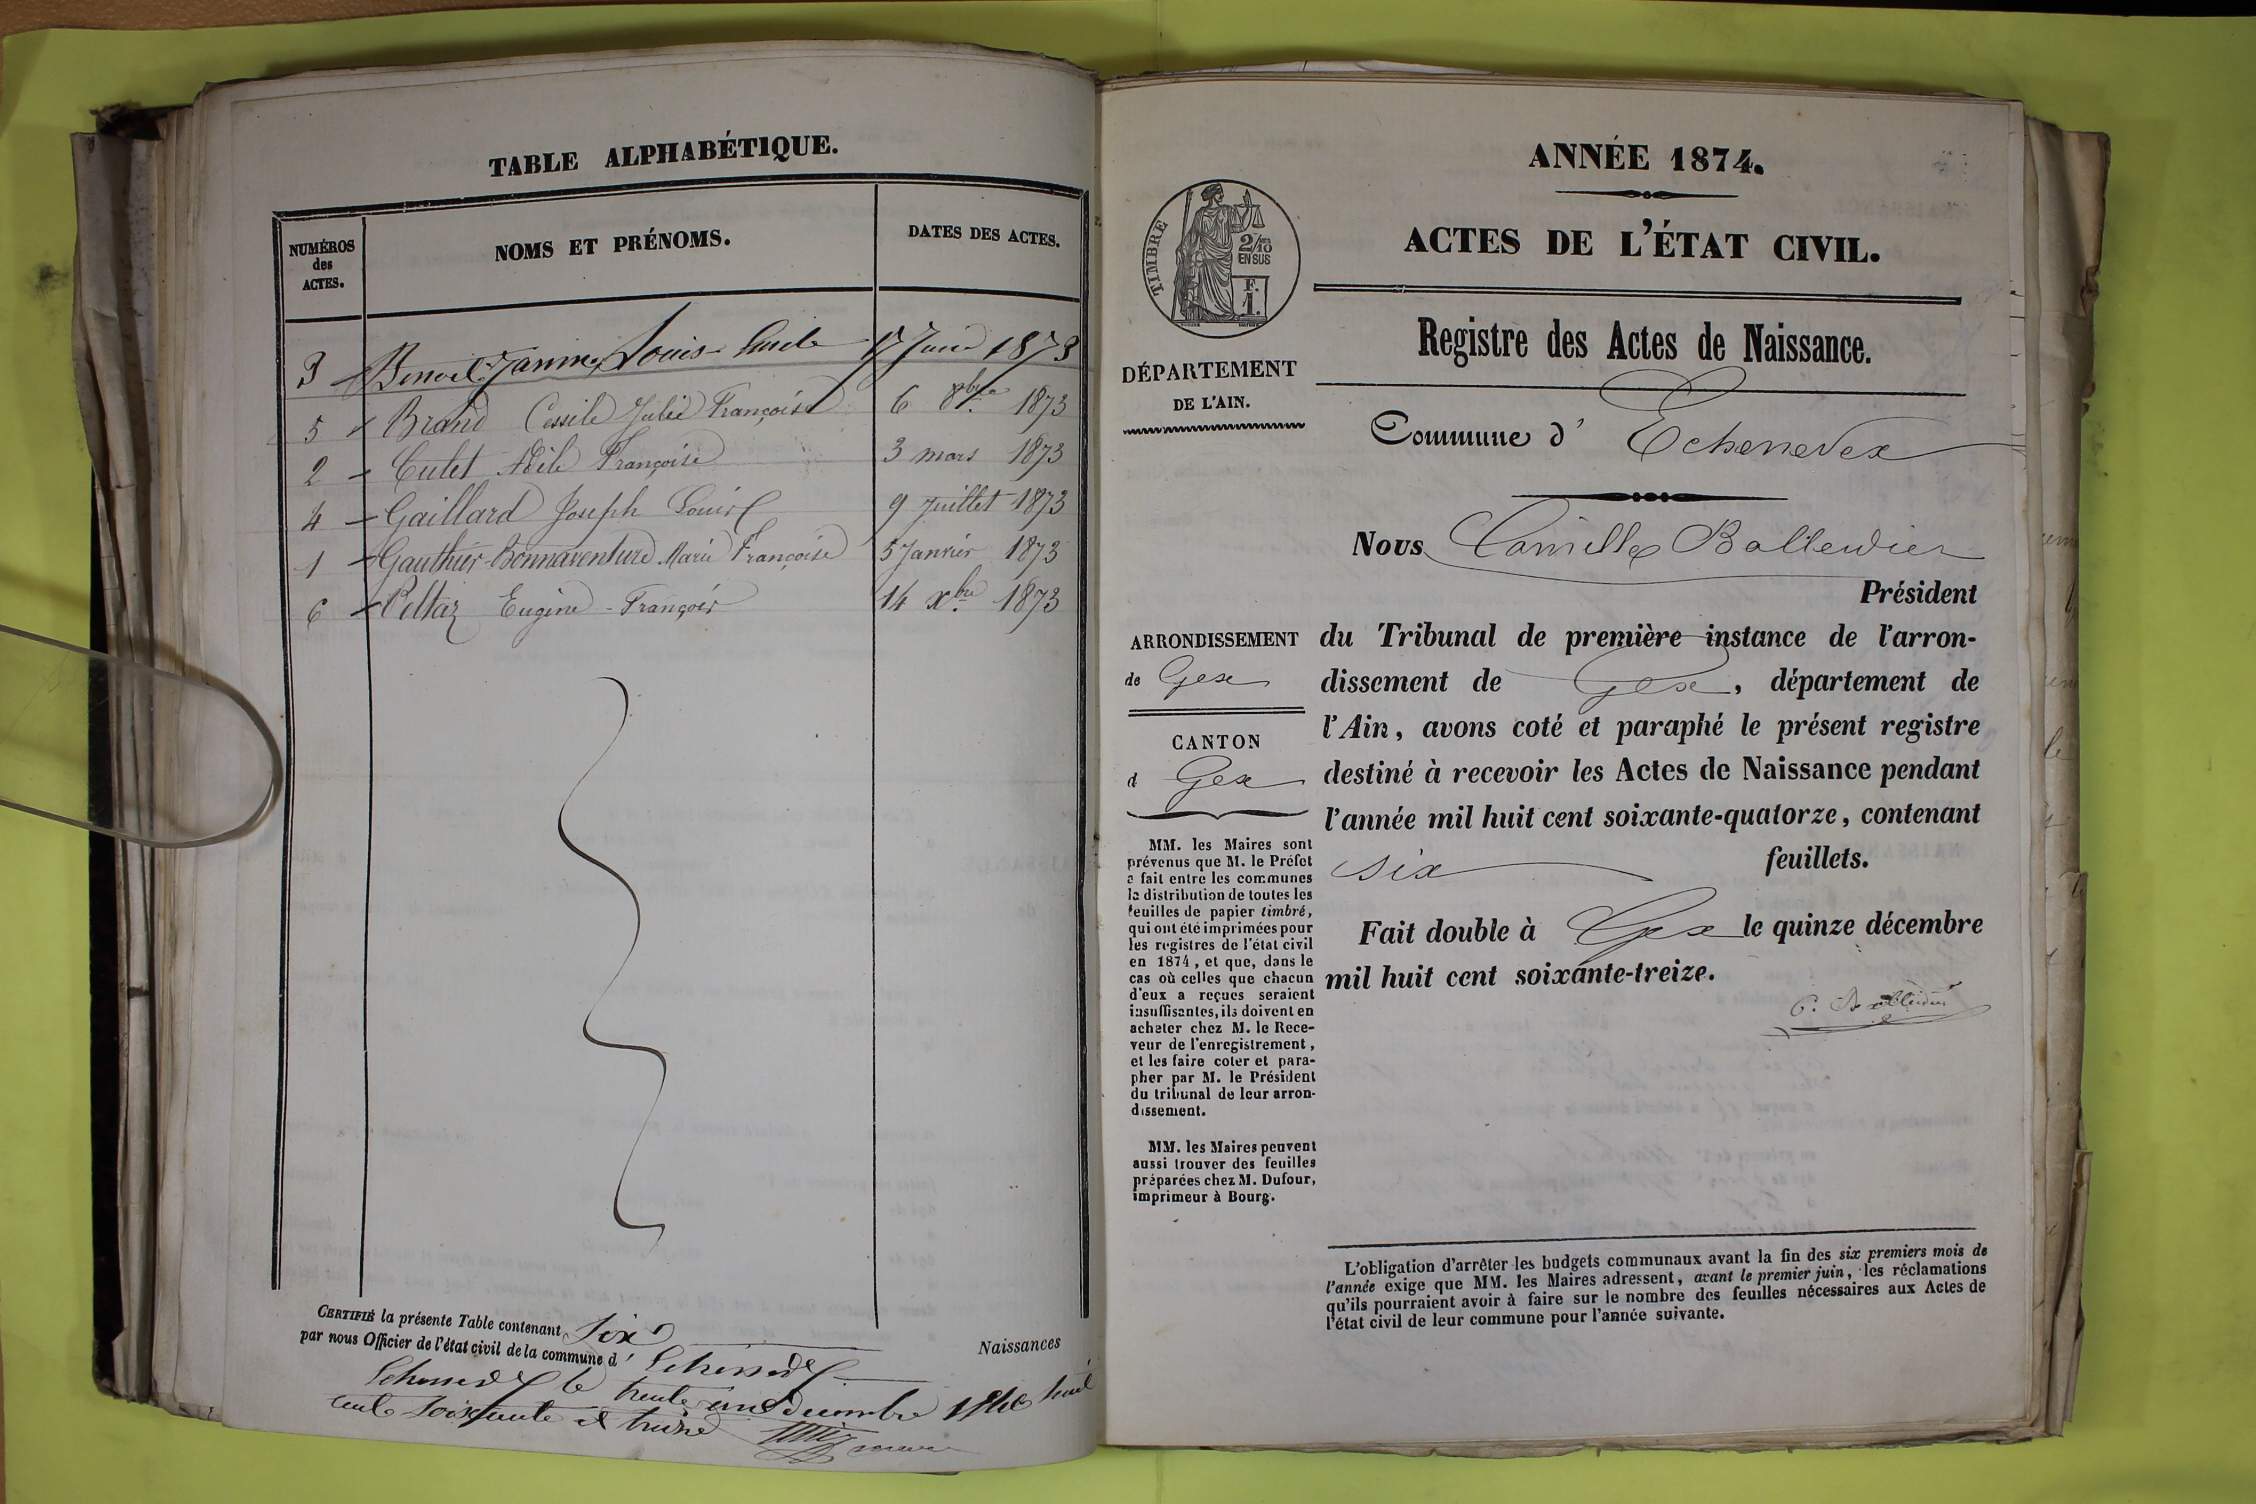 TABLE ALPHABÉTIQUE.
NUMÉROS
des
ACTES.
NOMS ET PRÉNOMS.
DATES DES ACTES.
3 Benoit-Jannin, Louis Emile 17 Juin 1873
5 Brand Cessile Julie Françoise 6 8bre 1873
2 Culet Adèle Françoise 3 mars 1873
4 Gaillard Joseph Louis 9 Juillet 1873
1 Gauthier-Bonnaventure Marie Françoise 5 Janvier 1873
6 Peltaz Eugène-François 14 Xbre 1873
CERTIFIÉ la présente Table contenant Six Naissances
par nous Officier de l'état civil de la commune d' Echenevex
Echenevex le trente un Décembre mil huit
cent soixante et treize
ANNÉE 1874.
ACTES DE L'ÉTAT CIVIL.
TIMBRE
2/10
EN SUS
F.
1.
Registre des Actes de Naissance.
DÉPARTEMENT
DE L'AIN.
Commune d' Echenevex
Nous Camille Balleidier
Président
ARRONDISSEMENT
de Gex
CANTON
d Gex
du Tribunal de première instance de l'arron-
dissement de Gex, département de
l'Ain, avons coté et paraphé le présent registre
destiné à recevoir les Actes de Naissance pendant
l'année mil huit cent soixante-quatorze, contenant
six feuillets.
Fait double à Gex le quinze décembre
mil huit cent soixante-treize.
C. Balleidier
MM. les Maires sont
prévenus que M. le Préfet
a fait entre les communes
la distribution de toutes les
feuilles de papier timbré,
qui ont été imprimées pour
les registres de l'état civil
en 1874, et que, dans le
cas où celles que chacun
d'eux a reçues seraient
insuffisantes, ils doivent en
acheter chez M. le Rece-
veur de l'enregistrement,
et les faire coter et para-
pher par M. le Président
du tribunal de leur arron-
dissement.
MM. les Maires peuvent
aussi trouver des feuilles
préparées chez M. Dufour,
imprimeur à Bourg.
L'obligation d'arrêter les budgets communaux avant la fin des six premiers mois de
l'année exige que MM. les Maires adressent, avant le premier juin, les réclamations
qu'ils pourraient avoir à faire sur le nombre des feuilles nécessaires aux Actes de
l'état civil de leur commune pour l'année suivante.